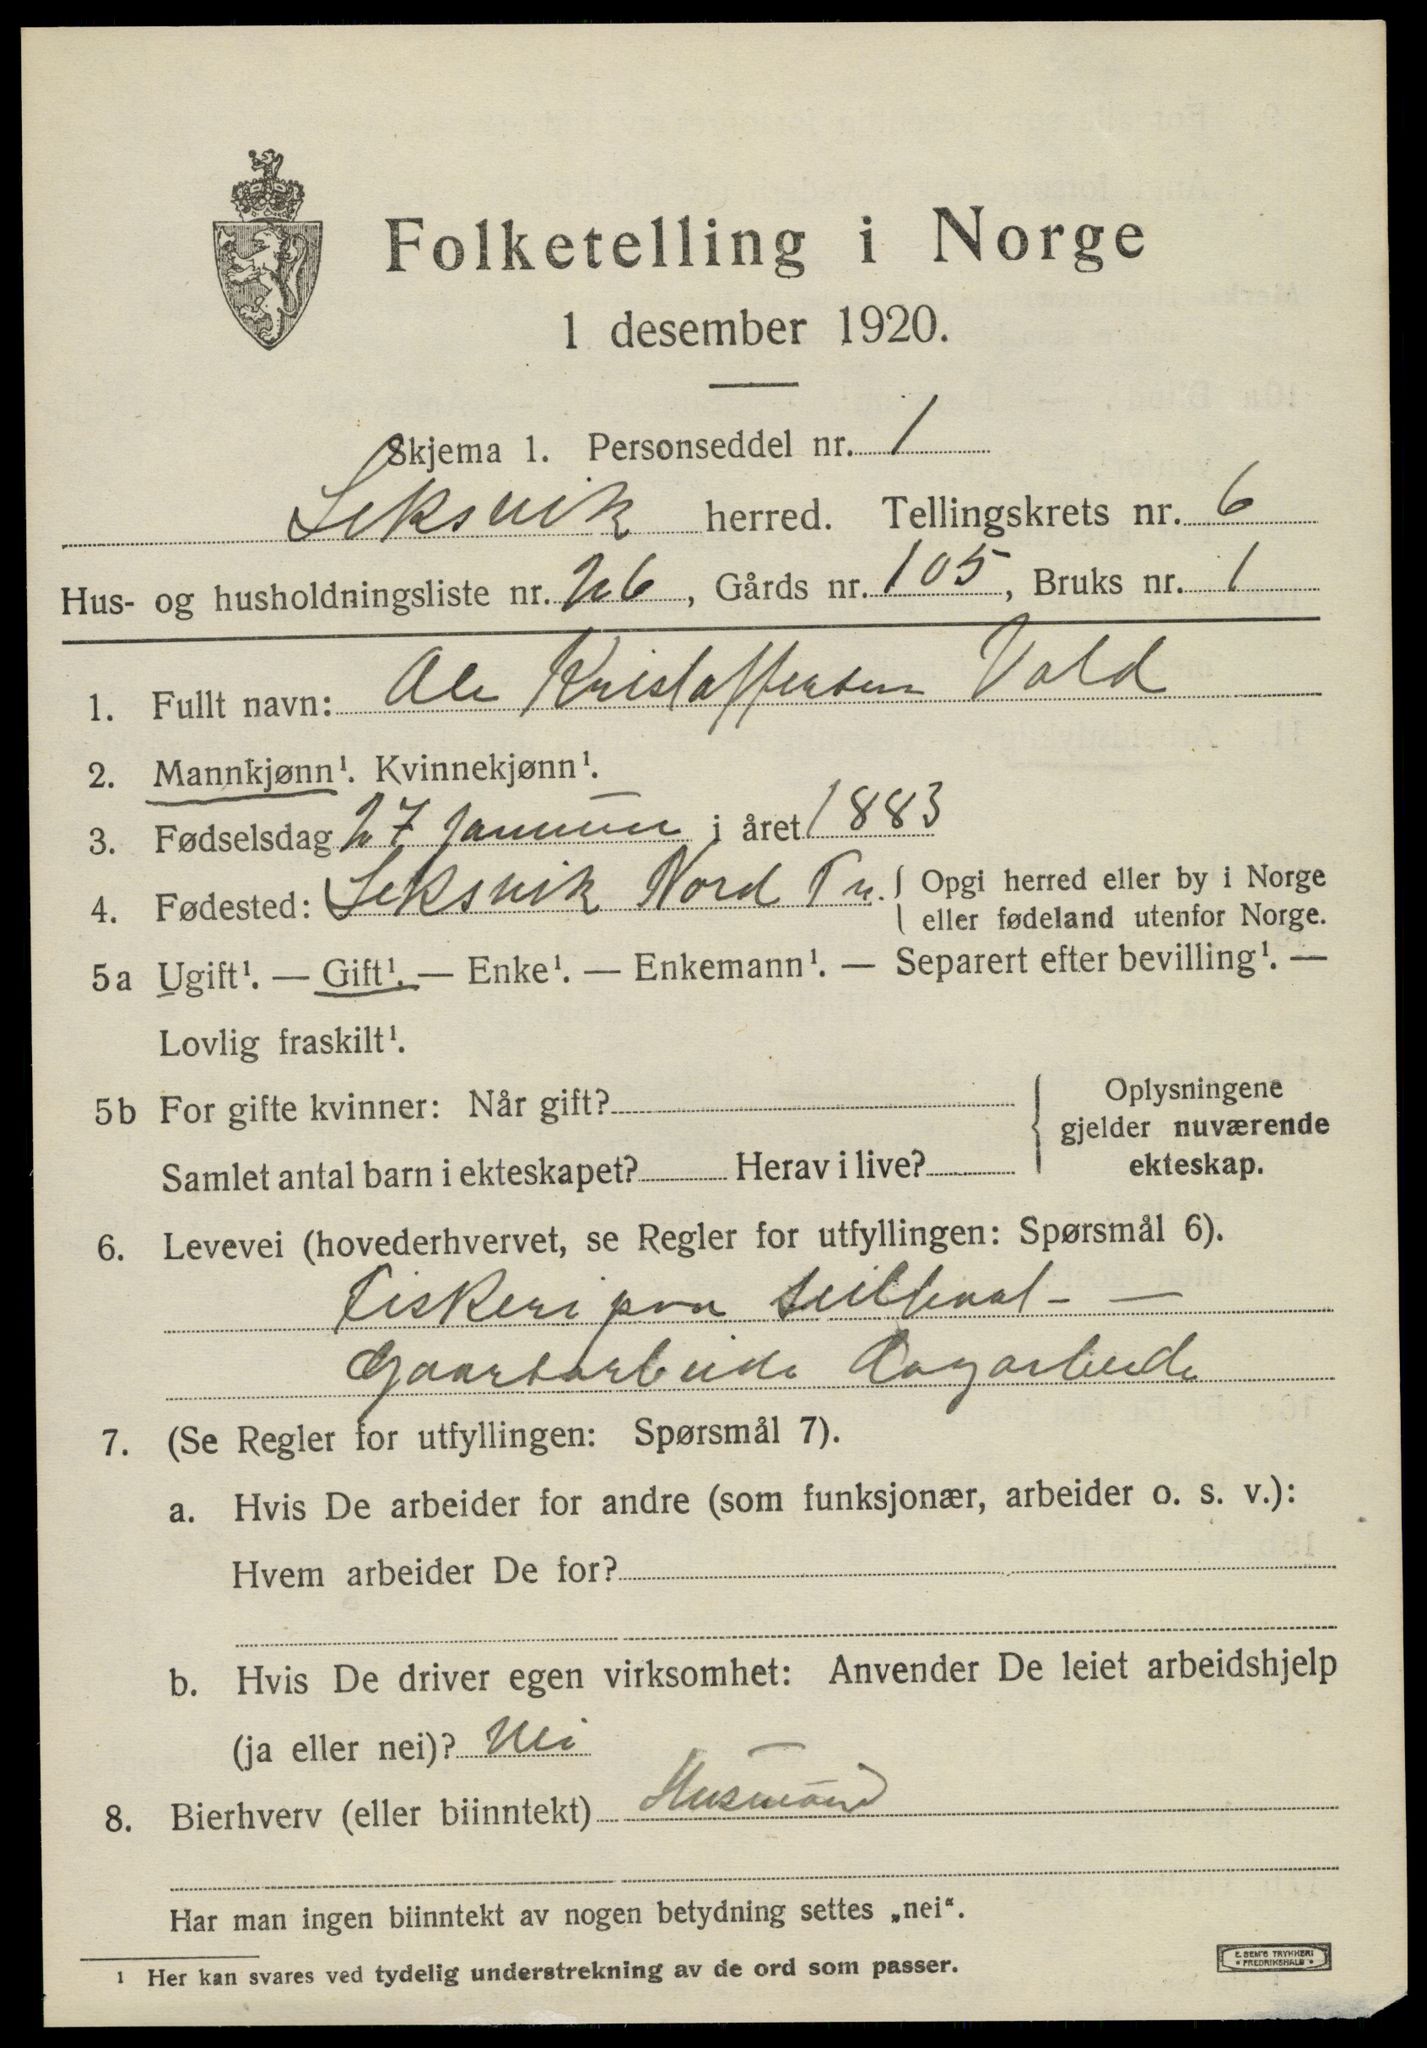 Folketelling i Norge
1 desember 1920.
Skjema 1. Personseddel nr. 1
Leksvik herred. Tellingskrets nr. 6
Hus- og husholdningsliste nr. 26, Gårds nr. 105, Bruks nr. 1
1. Fullt navn: Ole Kristoffersen Vold
2. Mannkjønn¹. Kvinnekjønn¹.
3. Fødselsdag 27 Januar i året 1883
4. Fødested: Leksvik Nord Tr. Opgi herred eller by i Norge
eller fødeland utenfor Norge.
5a Ugift¹. — Gift¹. — Enke¹. — Enkemann¹. — Separert efter bevilling¹. —
Lovlig fraskilt¹.
5b For gifte kvinner: Når gift?
Samlet antal barn i ekteskapet? Herav i live?
Oplysningene
gjelder nuværende
ekteskap.
6. Levevei (hovederhvervet, se Regler for utfyllingen: Spørsmål 6).
Fiskeri paa seilbaat —
Gaardarbeide Dagarbeide
7. (Se Regler for utfyllingen: Spørsmål 7).
a. Hvis De arbeider for andre (som funksjonær, arbeider o. s. v.):
Hvem arbeider De for?
b. Hvis De driver egen virksomhet: Anvender De leiet arbeidshjelp
(ja eller nei)? Nei
8. Bierhverv (eller biinntekt) Husmand
Har man ingen biinntekt av nogen betydning settes „nei“.
¹ Her kan svares ved tydelig understrekning av de ord som passer.
E. SEM'S TRYKKERI
FREDRIKSHALD